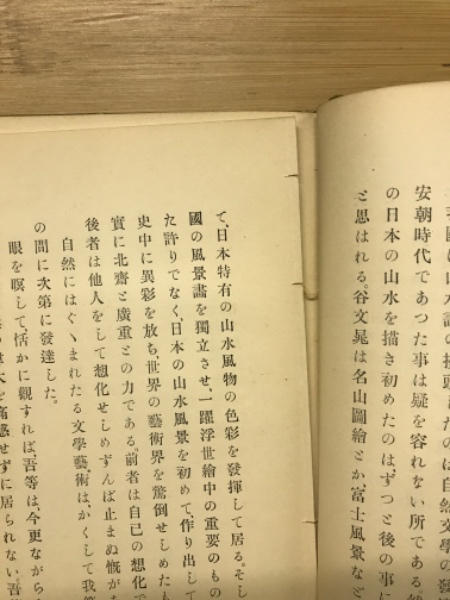 安朝時代であつた事は疑を容れない所である
の日本の山水を描き初めたのは、ずつと後の事に
と思はれる。谷文晁は名山圖繪とか、富士風景など
て、日本特有の山水風物の色彩を發揮して居る。そし
國の風景畵を獨立させ、一躍浮世繪中の重要のもの
た許りでなく、日本の山水風景を初めて、作り出して
史中に異彩を放ち、世界の藝術界を驚倒せしめたも
實に北齋と廣重との力である。前者は自己の想化で
後者は他人をして想化せしめずんば止まぬ慨が
自然にはぐゝまれたる文學藝術は、かくして我
の間に次第に發達した。
眼を瞑して、恬かに觀すれば、吾等は、今更ながら
を痛感せずに居られない。吾